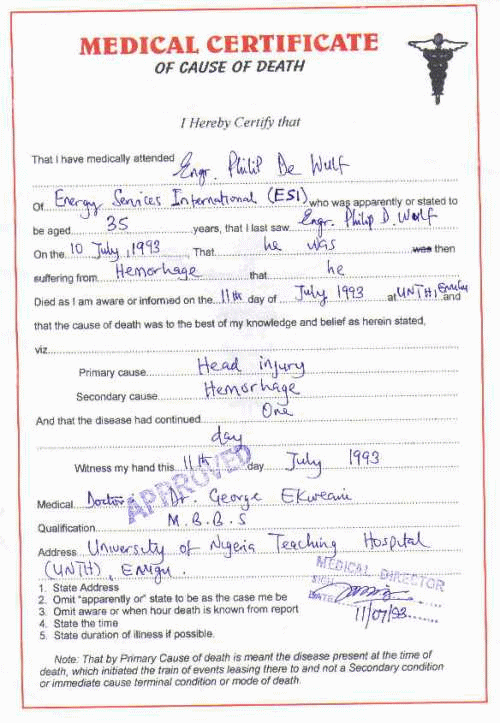 MEDICAL CERTIFICATE
OF CAUSE OF DEATH
I Hereby Certify that
That I have medically attended Engr. Philip De Wulf
Of Energy Services International (ESI) who was apparently or stated to
be aged 35 years, that I last saw Engr. Philip D. Wulf
On the 10 July, 1993 That he was was then
suffering from Hemorhage that he
Died as I am aware or informed on the 11th day of July 1993 at UNTH, Enugu and
that the cause of death was to the best of my knowledge and belief as herein stated,
viz
Primary cause Head injury
Secondary cause Hemorhage
And that the disease had continued One
day
Witness my hand this 11th day July 1993
APPROVED
Medical Doctor: Dr. George Ekweani
Qualification M.B.B.S
Address University of Nigeria Teaching Hospital
(UNTH), Enugu.
MEDICAL DIRECTOR
SIGN
DATE 11/07/93
1. State Address
2. Omit "apparently or" state to be as the case me be
3. Omit aware or when hour death is known from report
4. State the time
5. State duration of illness if possible.
Note: That by Primary Cause of death is meant the disease present at the time of
death, which initiated the train of events leasing there to and not a Secondary condition
or immediate cause terminal condition or mode of death.